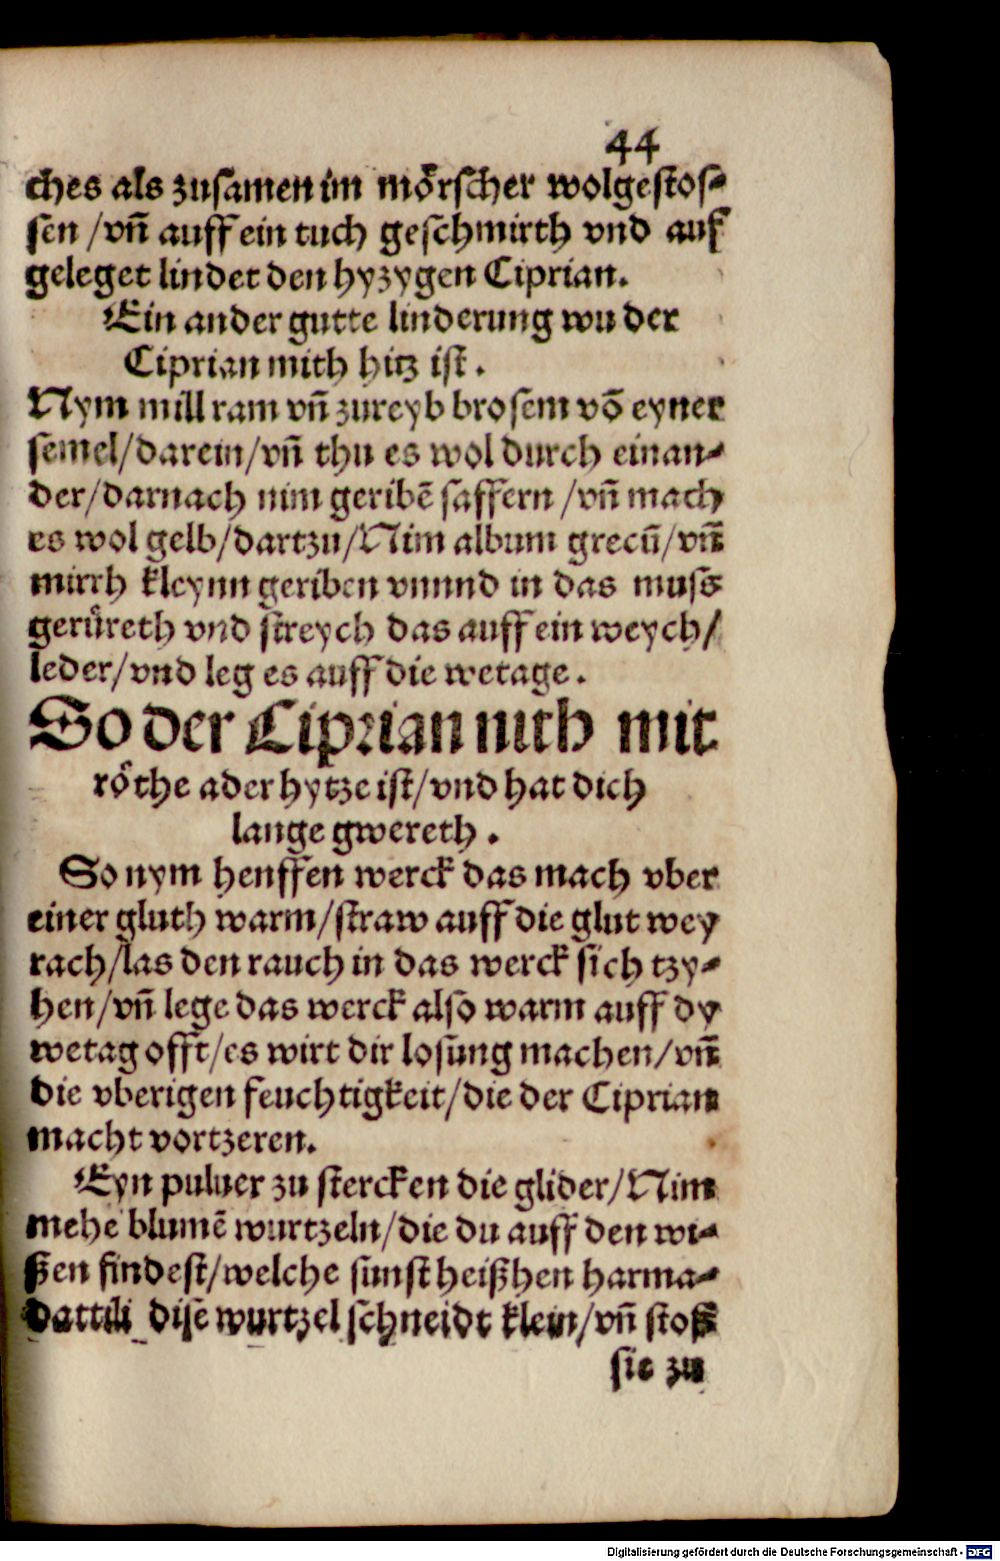 44
ches als zusamen im moͤrscher wolgestos⸗
sen /vñ auff ein tuch geschmirth vnd auf
geleget lindet den hyzygen Ciprian.
Ein ander gutte linderung wu der
Ciprian mith hitz ist.
Nym mill ram vñ zureyb brosem võ eyner
semel/darein/vñ thu es wol durch einan⸗
der/darnach nim geribẽ saffern /vñ mach
es wol gelb/dartzu/Nim album grecũ/vñ
mirrh kleynn geriben vnnnd in das muss
geruͤreth vnd streych das auff ein weych/
leder/vnd leg es auff die wetage.
So der Ciprian nith mit
roͤthe ader hytze ist/vnd hat dich
lange gwereth.
So nym henffen werck das mach vber
einer gluth warm/straw auff die glut wey
rach/las den rauch in das werck sich tzy⸗
hen/vñ lege das werck also warm auff dy
wetag offt/es wirt dir losung machen/vñ
die vberigen feuchtigkeit/die der Ciprian
macht vortzeren.
Eyn puluer zu stercken die glider/Nim
mehe blumẽ wurtzeln/die du auff den wi⸗
ßen findest/welche sunst heißhen harma⸗
dattili dise wurtzel schneidt klein/vñ stoß
sie zu
Digitalisierung gefördert durch die Deutsche Forschungsgemeinschaft - DFG